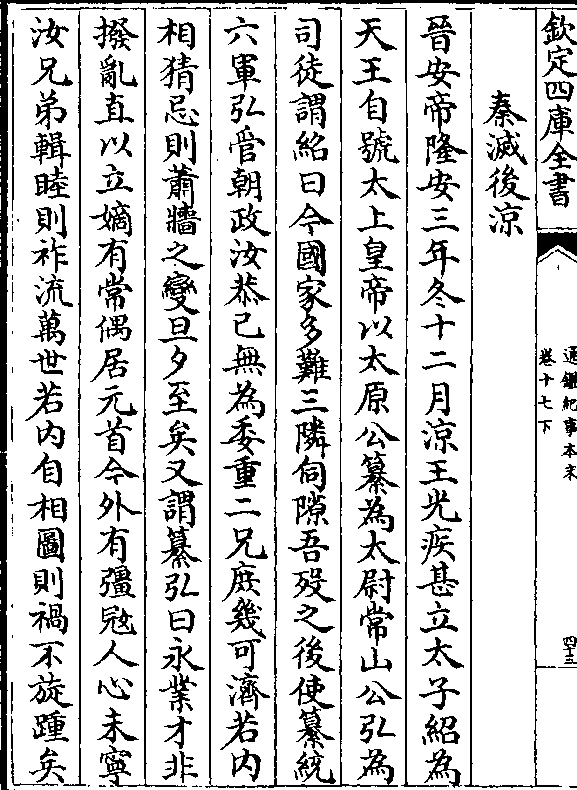 欽定四庫全書
通鑑紀事本末
卷十七下
四十三
秦滅後涼
晉安帝隆安三年冬十二月涼王光疾甚立太子紹為
天王自號太上皇帝以太原公纂為太尉常山公弘為
司徒謂紹曰今國家多難三隣伺隙吾歿之後使纂統
六軍弘管朝政汝恭己無為委重二兄庶幾可濟若内
相猜忌則蕭牆之變旦夕至矣又謂纂弘曰永業才非
撥亂直以立嫡有常偶居元首今外有彊寇人心未寧
汝兄弟輯睦則祚流萬世若内自相圖則禍不旋踵矣